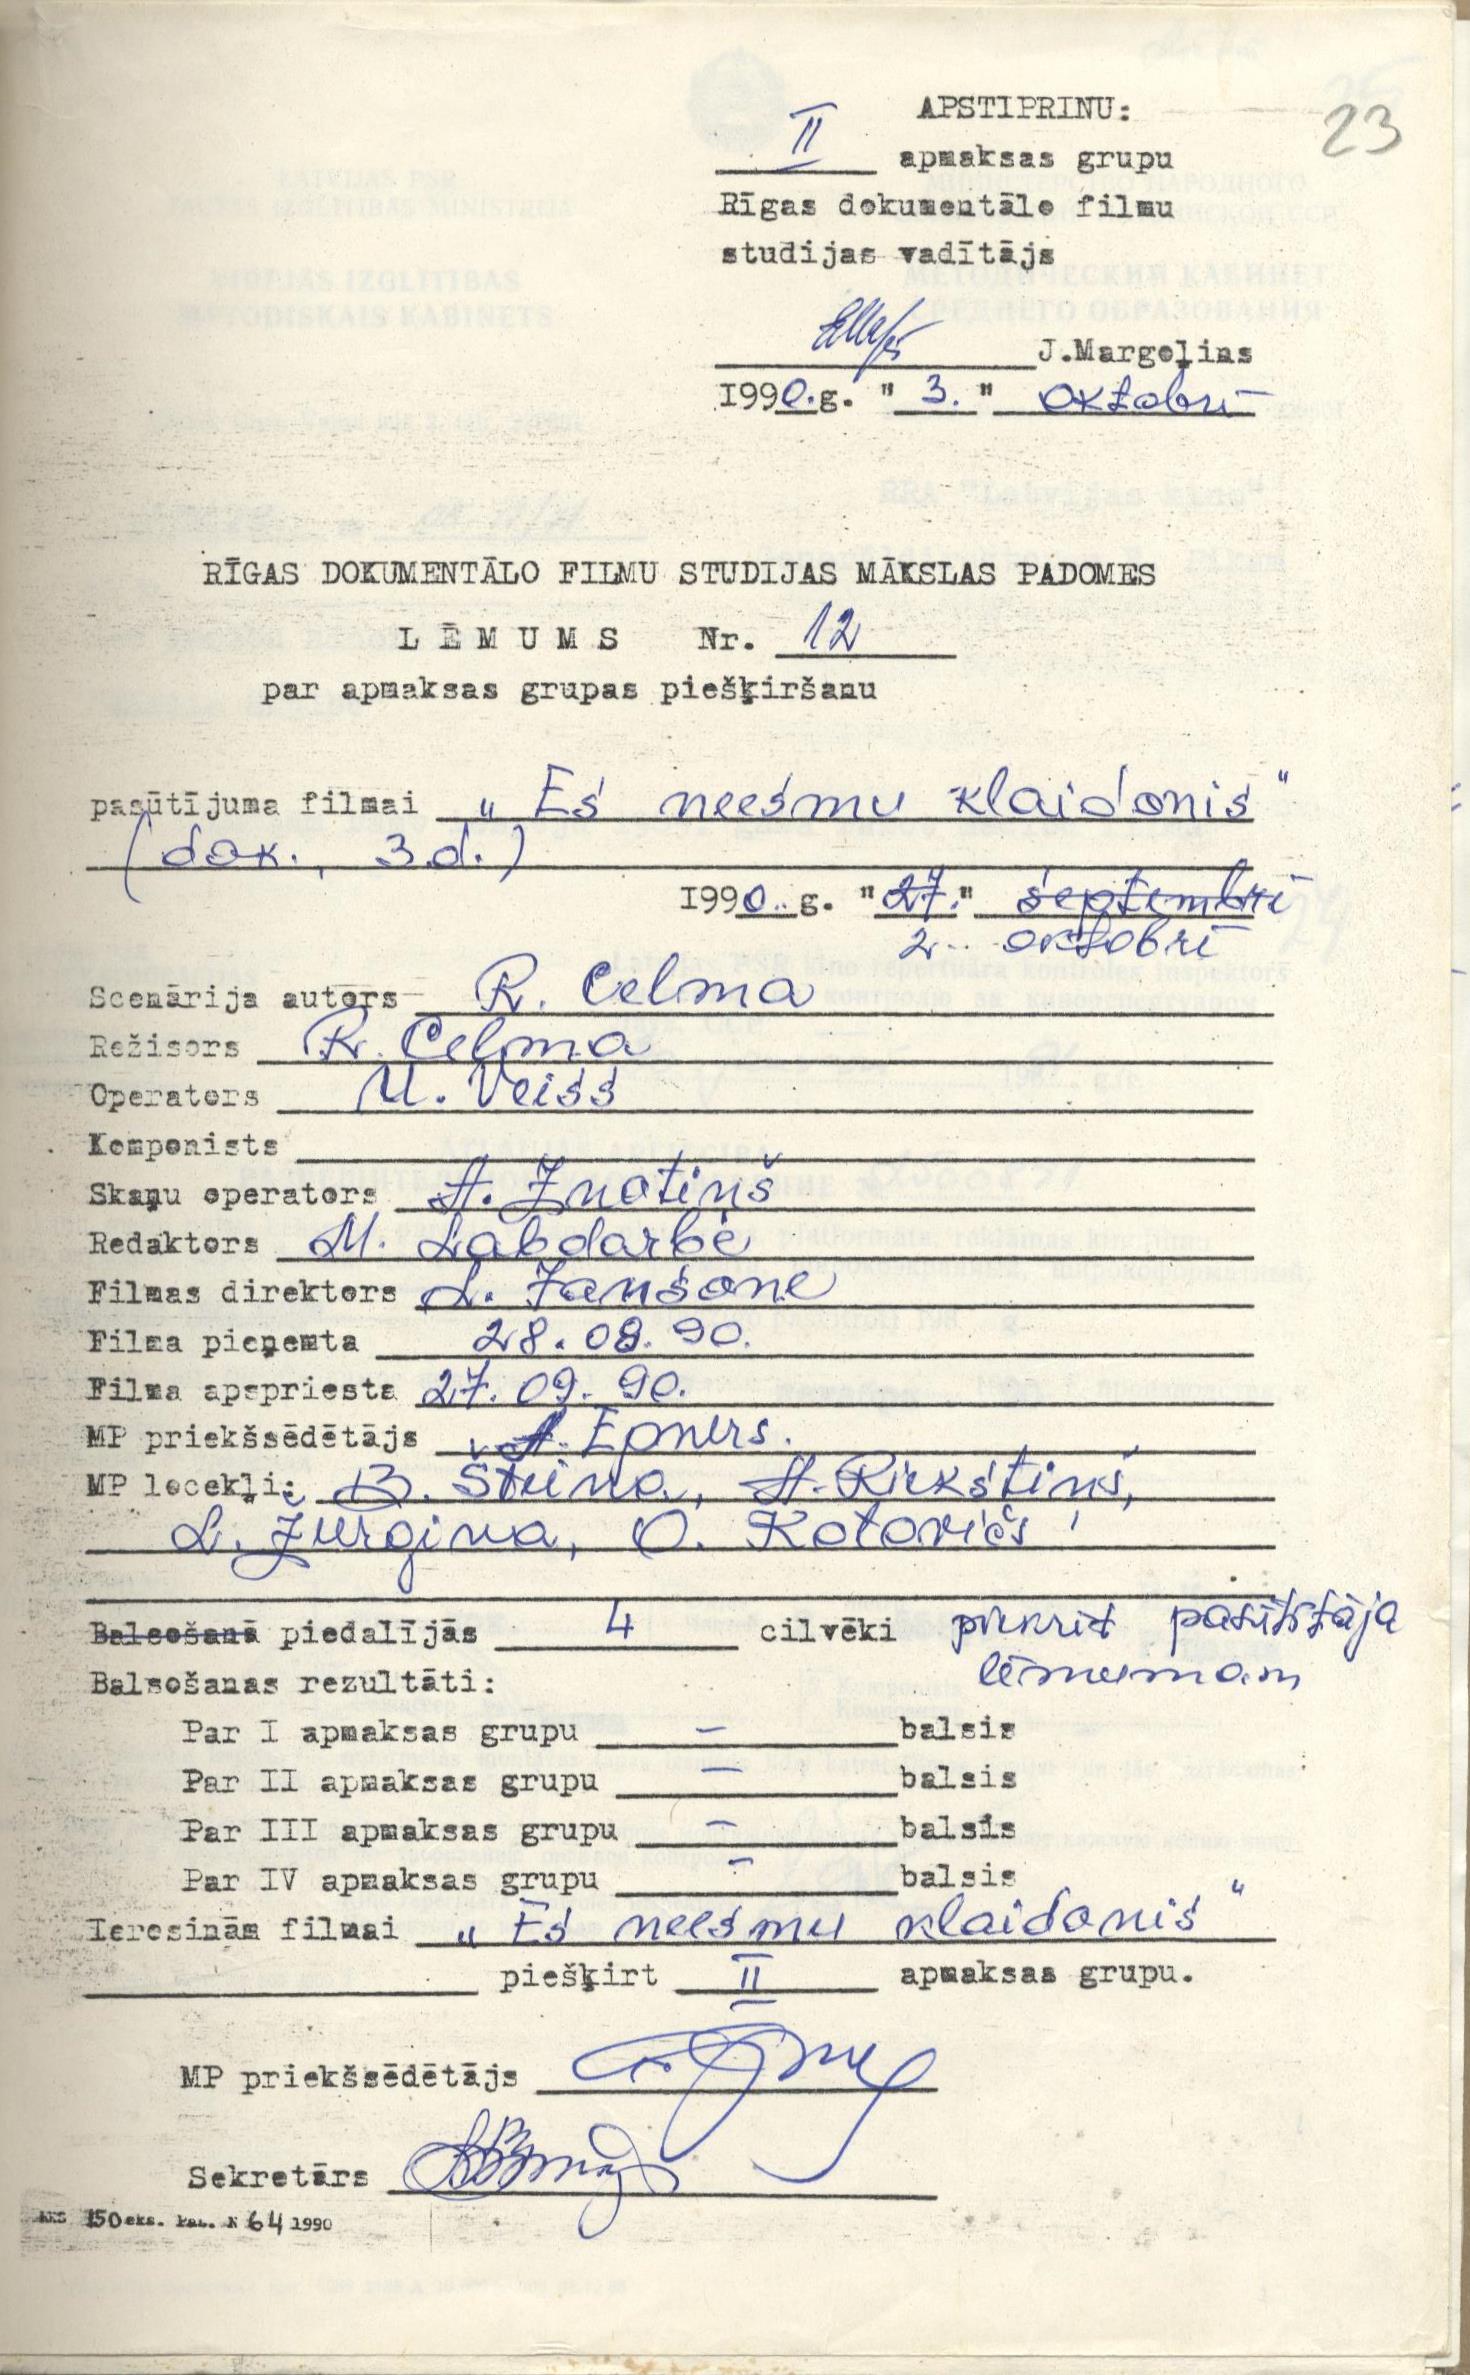 23
APSTIPRINU:
II apmaksas grupu
Rīgas dokumentālo filmu
studijas vadītājs
J.Margoļins
1990.g. "3." oktobrī
RĪGAS DOKUMENTĀLO FILMU STUDIJAS MĀKSLAS PADOMES
LĒMUMS Nr. 12
par apmaksas grupas piešķiršanu
pasūtījuma filmai „Es neesmu klaidonis"
(dok., 3.d.)
1990.g. "27." septembrī
2. oktobrī
Scenārija autors R. Celma
Režisors R. Celma
Operators U. Veiss
Komponists
Skaņu operators A. Znotiņš
Redaktors M. Labdarbe
Filmas direktors L. Jansone
Filma pieņemta 28.08.90.
Filma apspriesta 27.09.90.
MP priekšsēdētājs A. Epners.
MP locekļi: B. Šteina, A. Riekstiņš,
L. Žurgina, O. Kotovičs
Balsošanā piedalījās 4 cilvēki piekrist pasūtītāja
lēmumam
Balsošanas rezultāti:
Par I apmaksas grupu – balsis
Par II apmaksas grupu – balsis
Par III apmaksas grupu – balsis
Par IV apmaksas grupu – balsis
Ierosinām filmai „Es neesmu klaidonis"
piešķirt II apmaksas grupu.
MP priekšsēdētājs
Sekretārs
150 eks. Pas. N 64 1990